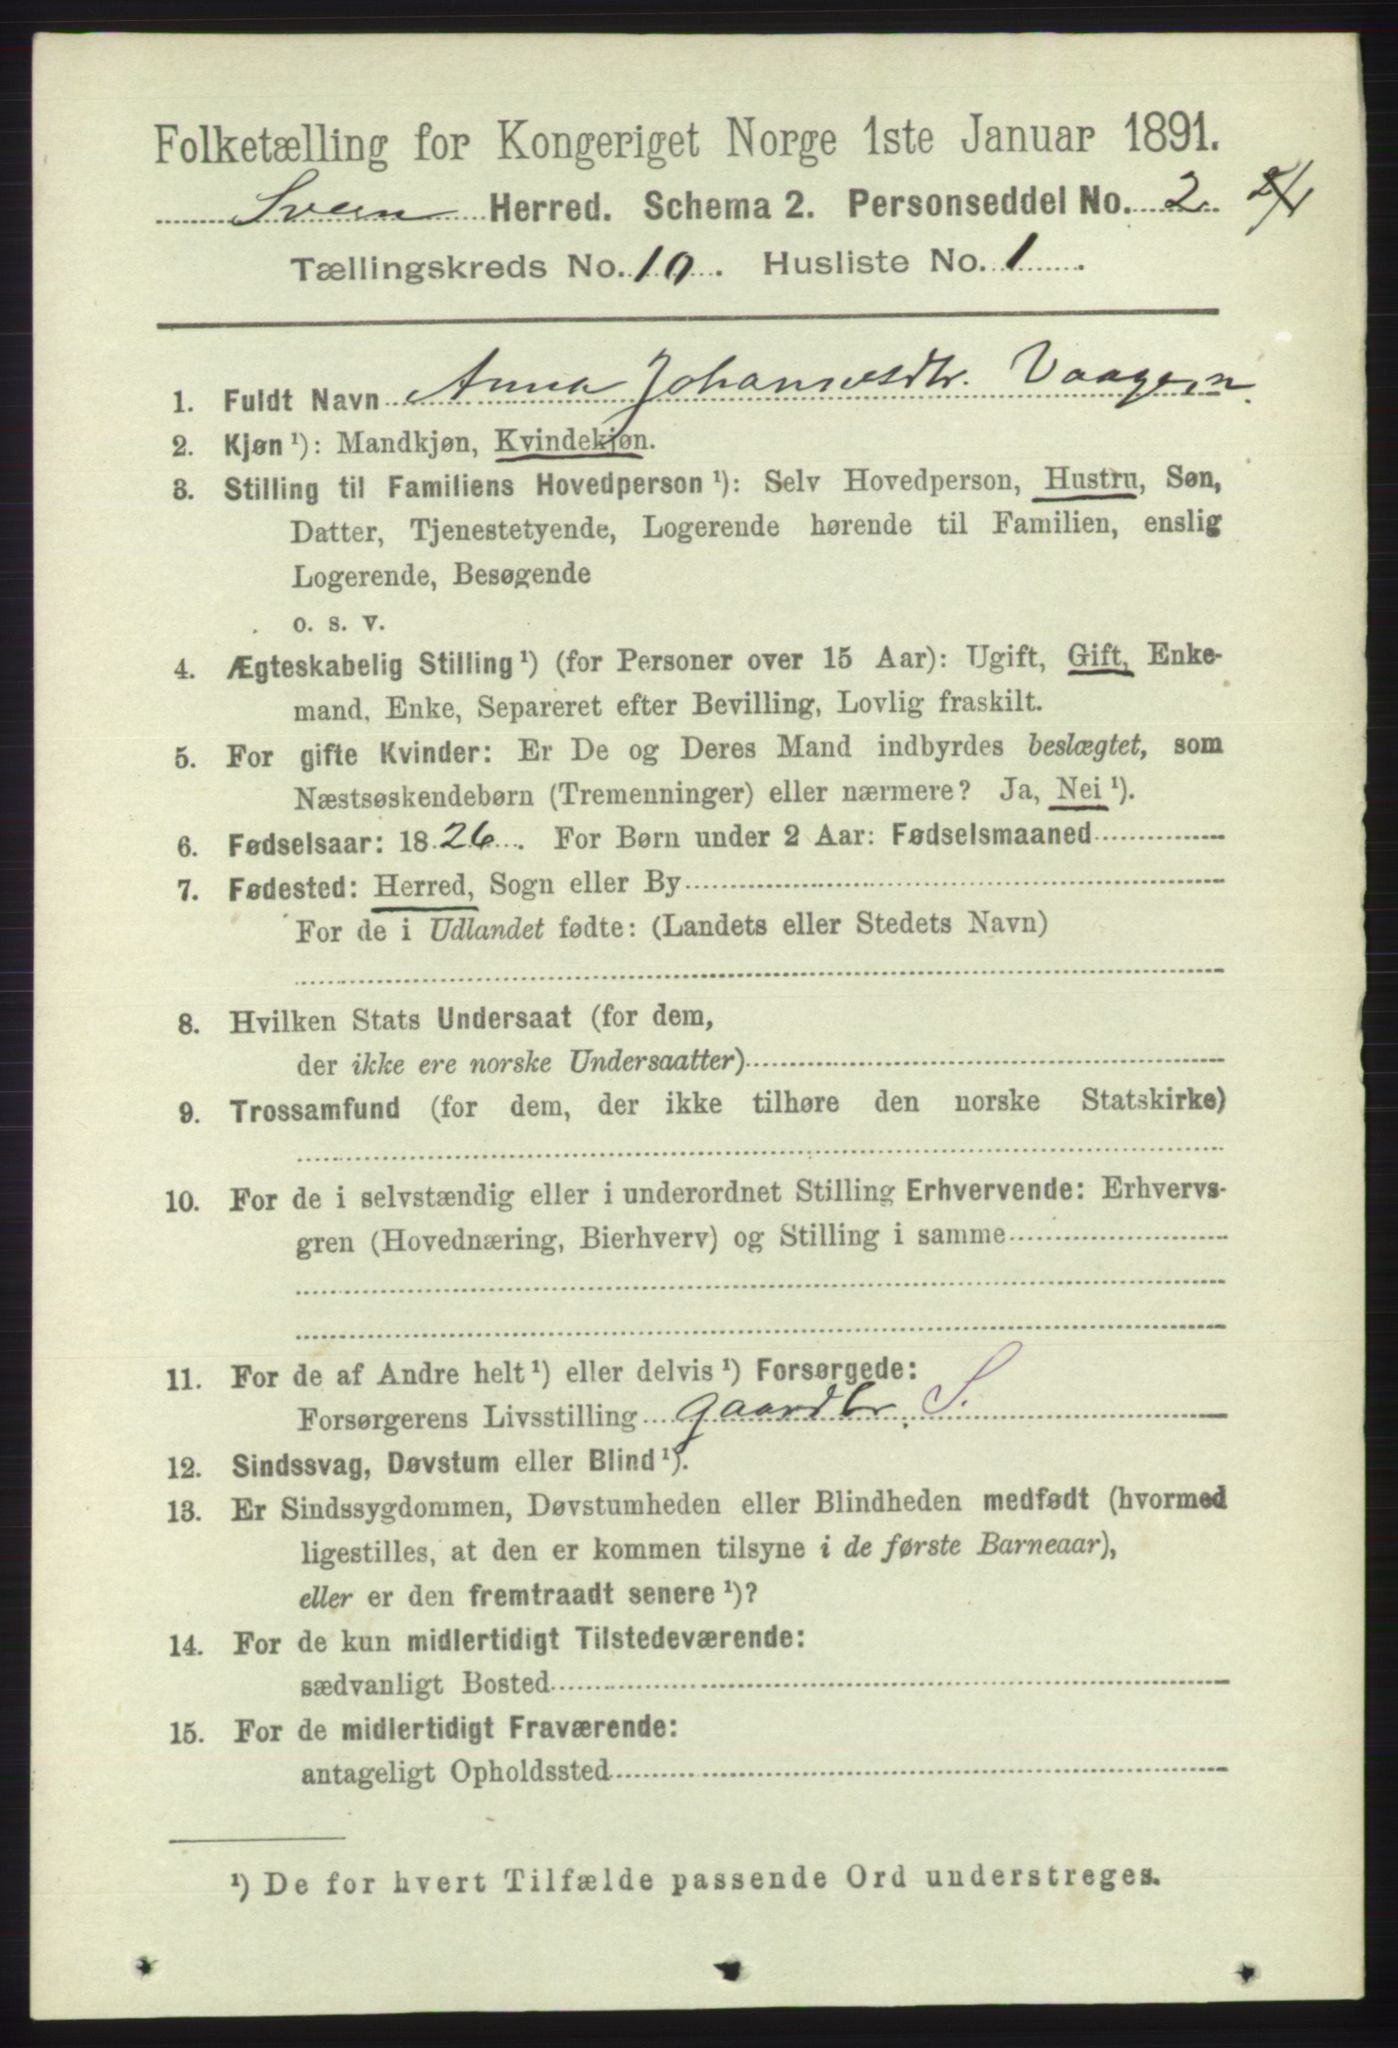 Folketælling for Kongeriget Norge 1ste Januar 1891.
Sveen Herred. Schema 2. Personseddel No. 2.
Tællingskreds No. 10. Husliste No. 1.
1. Fuldt Navn Anna Johannesdtr. Vaagen
2. Kjøn ¹): Mandkjøn, Kvindekjøn.
3. Stilling til Familiens Hovedperson ¹): Selv Hovedperson, Hustru, Søn,
Datter, Tjenestetyende, Logerende hørende til Familien, enslig
Logerende, Besøgende
o. s. v.
4. Ægteskabelig Stilling ¹) (for Personer over 15 Aar): Ugift, Gift, Enke-
mand, Enke, Separeret efter Bevilling, Lovlig fraskilt.
5. For gifte Kvinder: Er De og Deres Mand indbyrdes beslægtet, som
Næstsøskendebørn (Tremenninger) eller nærmere? Ja, Nei ¹).
6. Fødselsaar: 1826. For Børn under 2 Aar: Fødselsmaaned
7. Fødested: Herred, Sogn eller By
For de i Udlandet fødte: (Landets eller Stedets Navn)
8. Hvilken Stats Undersaat (for dem,
der ikke ere norske Undersaatter)
9. Trossamfund (for dem, der ikke tilhøre den norske Statskirke)
10. For de i selvstændig eller i underordnet Stilling Erhvervende: Erhvervs-
gren (Hovednæring, Bierhverv) og Stilling i samme
11. For de af Andre helt ¹) eller delvis ¹) Forsørgede:
Forsørgerens Livsstilling gaardbr. S.
12. Sindssvag, Døvstum eller Blind ¹).
13. Er Sindssygdommen, Døvstumheden eller Blindheden medfødt (hvormed
ligestilles, at den er kommen tilsyne i de første Barneaar),
eller er den fremtraadt senere ¹)?
14. For de kun midlertidigt Tilstedeværende:
sædvanligt Bosted
15. For de midlertidigt Fraværende:
antageligt Opholdssted
¹) De for hvert Tilfælde passende Ord understreges.